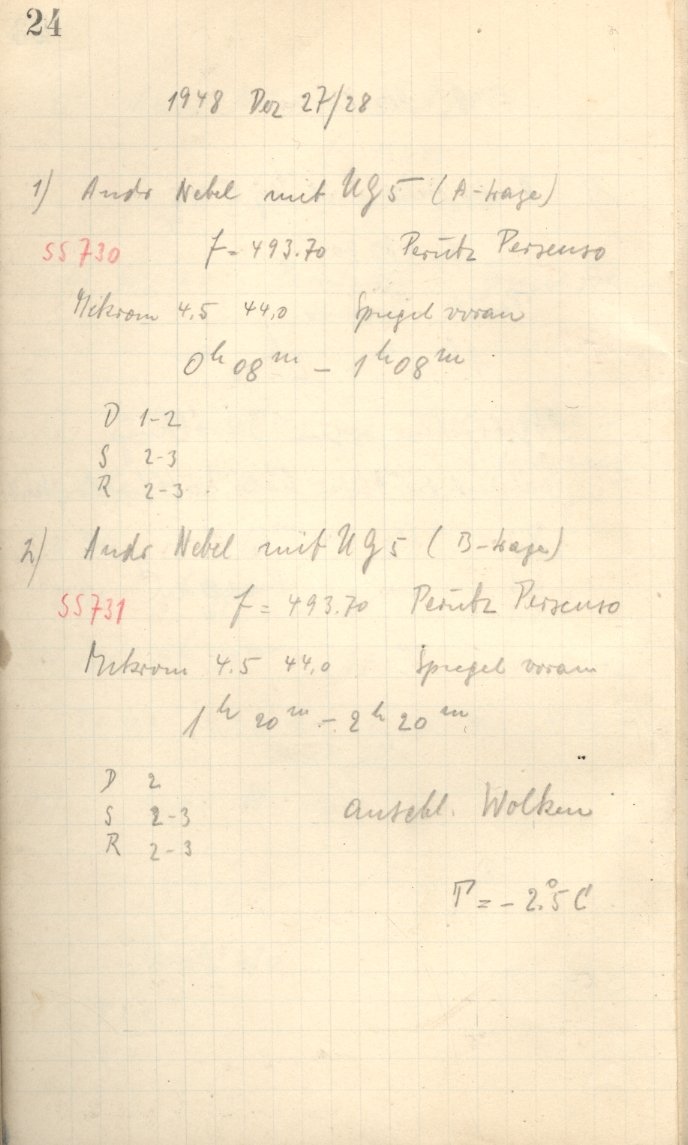 24
1948 Dez 27/28
1) Andr Nebel mit UG5 (A-Lage)
SS730 f = 493.70 Perutz Persenso
Mikrom 4.5 44,0 Spiegel voran
0h 08m – 1h 08m
D 1-2
S 2-3
R 2-3
2) Andr Nebel mit UG5 (B-Lage)
SS731 f = 493.70 Perutz Persenso
Mikrom 4.5 44,0 Spiegel voran
1h 20m – 2h 20m
D 2
S 2-3
R 2-3
anschl. Wolken
T = -2.°5 C